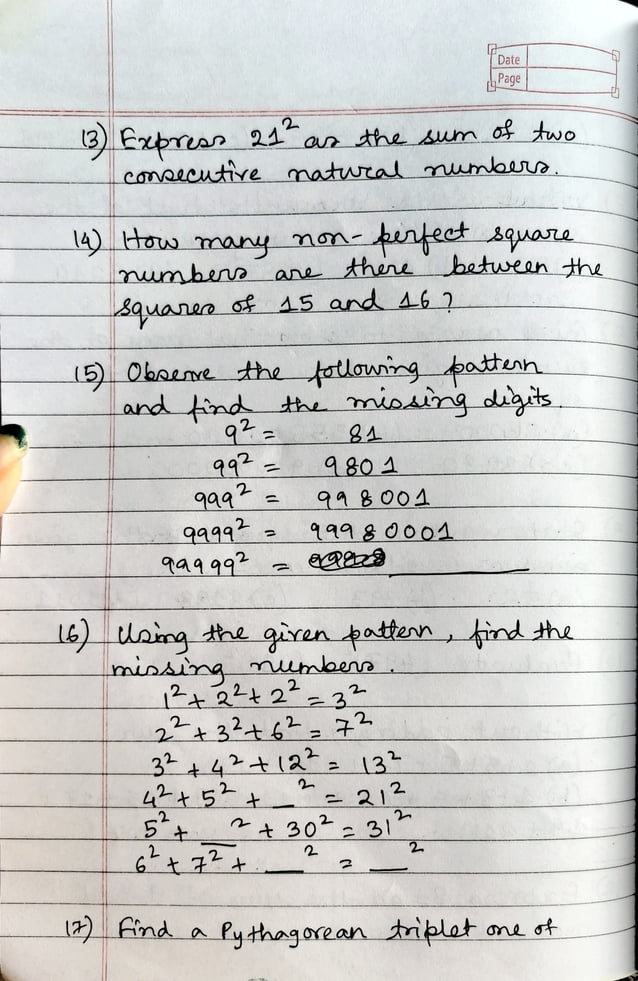 Date
Page
13) Express 21² as the sum of two
consecutive natural numbers.
14) How many non-perfect square
numbers are there between the
squares of 15 and 16?
15) Observe the following pattern
and find the missing digits.
9² = 81
99² = 9801
999² = 998001
9999² = 99980001
99999² = ________
16) Using the given pattern, find the
missing numbers.
1² + 2² + 2² = 3²
2² + 3² + 6² = 7²
3² + 4² + 12² = 13²
4² + 5² + _² = 21²
5² + _² + 30² = 31²
6² + 7² + _² = _²
17) Find a Pythagorean triplet one of